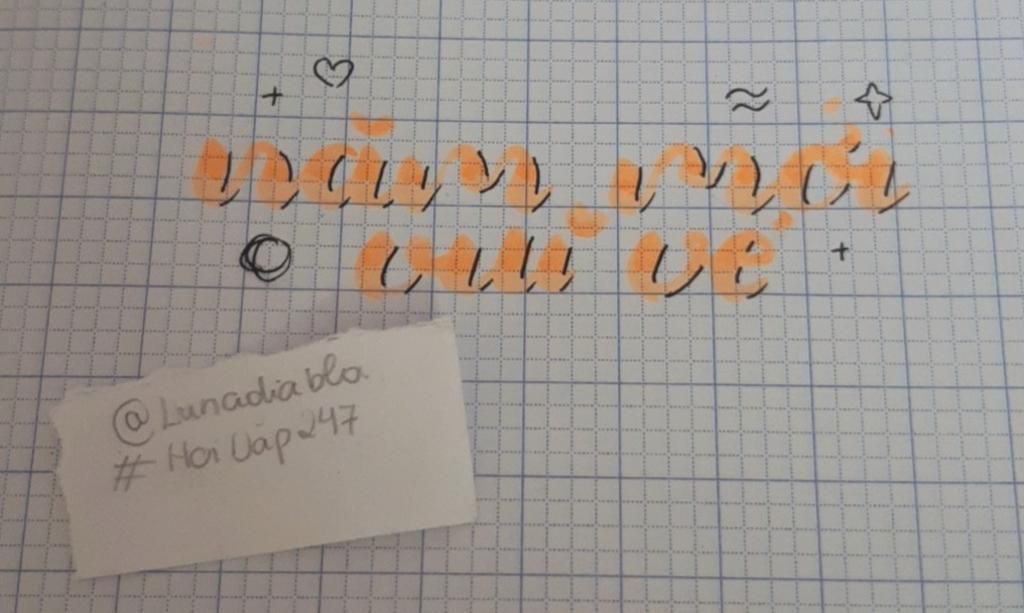 năm mới
vui vẻ
@Lunadiabla
#HoiVap247